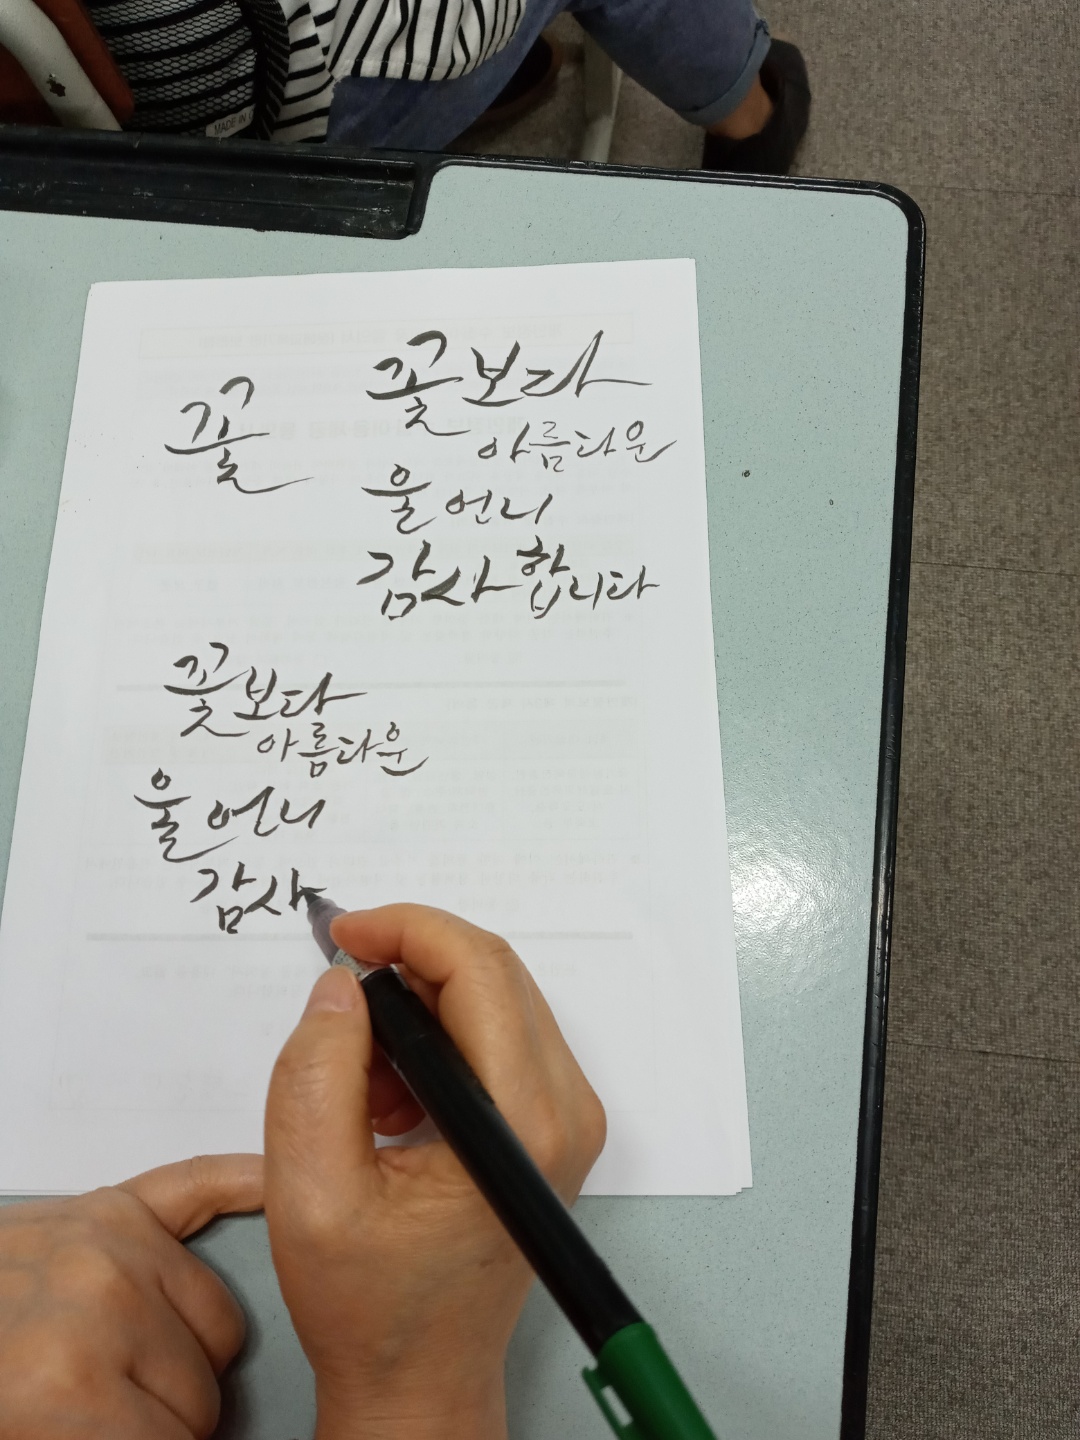 꽃보다
아름다운
울 언니
감사합니다
꼴
꽃보다
아름다운
울 언니
감사
MADE IN